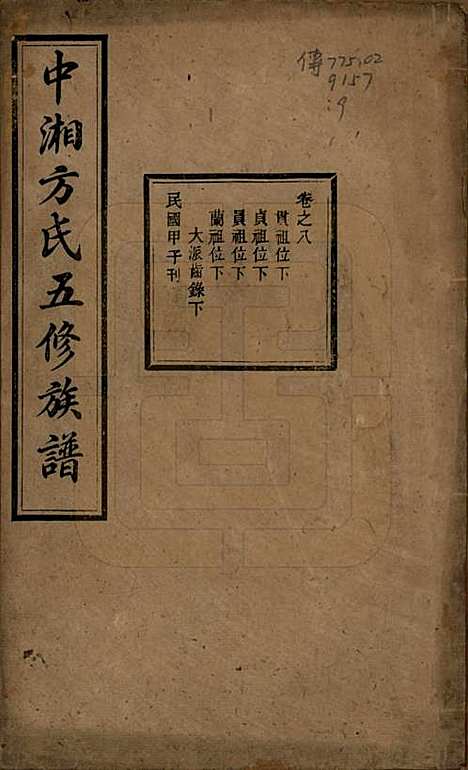 中湘方氏五修族譜
卷之八
貫祖位下
貞祖位下
員祖位下
蘭祖位下
大派齒錄下
民國甲子刊
傳 775.02
9157
:9